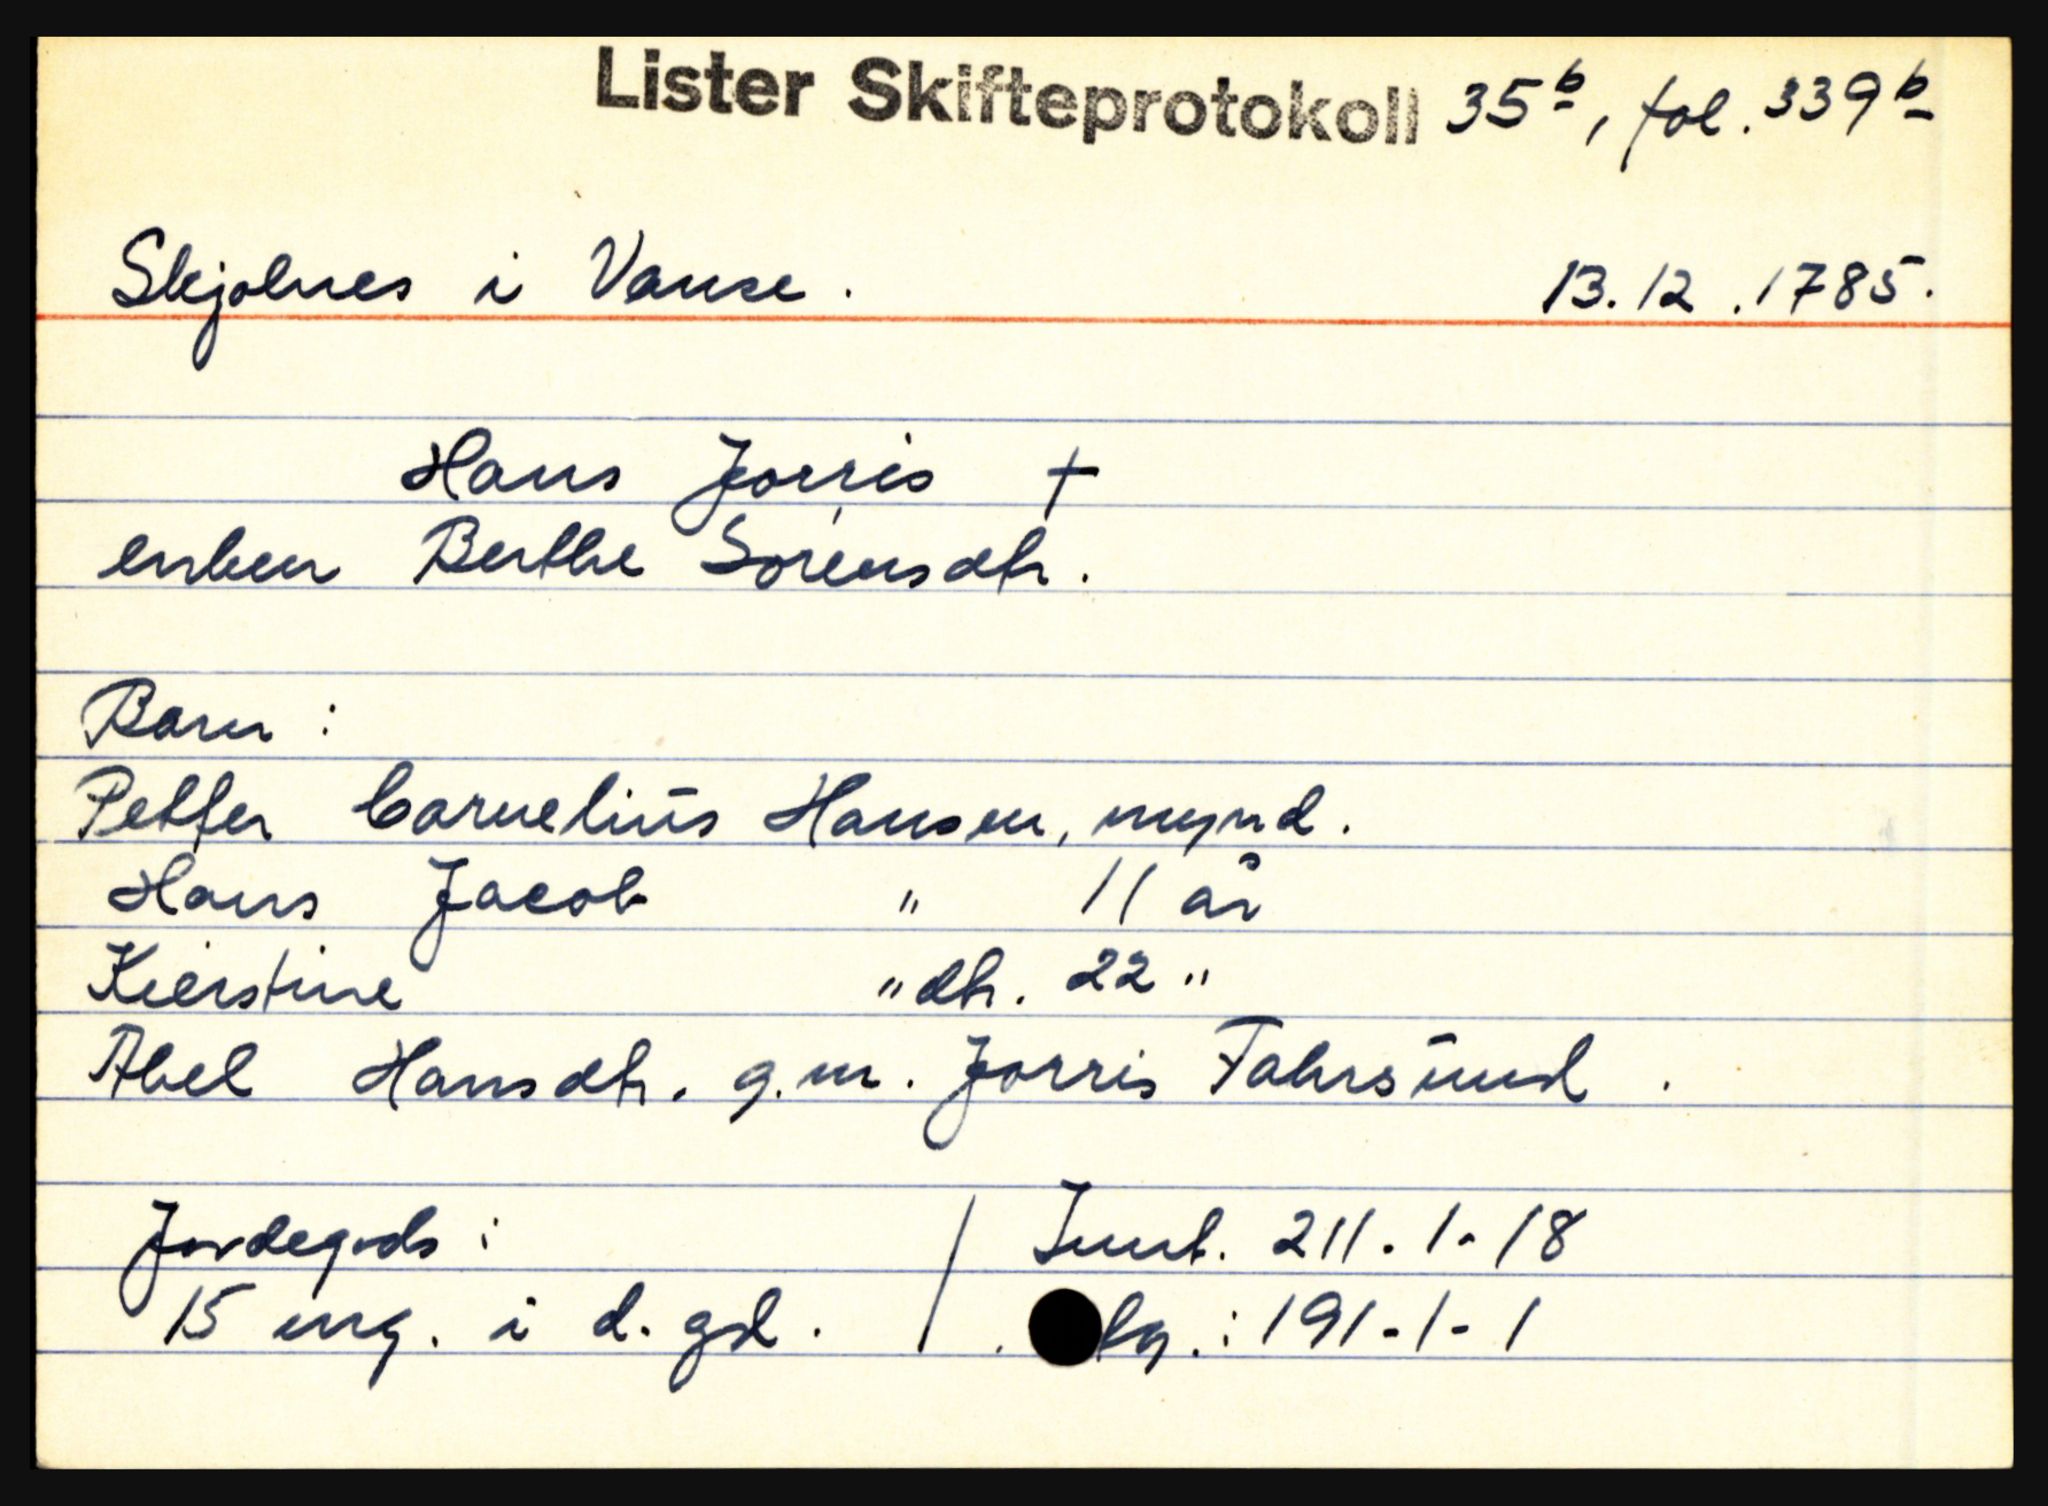 Lister Skifteprotokoll 35b, fol. 339b
Skjolnes i Vanse. 13.12.1785.
Hans Jorris †
enken Berthe Sørensdtr.
Barn:
Petter Cornelius Hansen, mynd.
Hans Jacob " 11 år
Kierstine " dtr. 22 "
Abel Hansdtr. g.m. Jorris Fahrsund.
Jordegods: / Innt. 211-1-18
15 eng. i d. gd. /
: 191-1-1